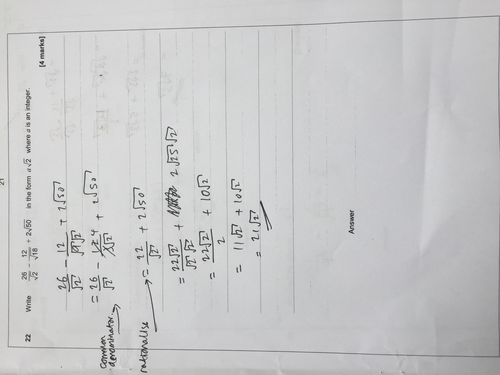 21
22 Write 26/√2 − 12/√18 + 2√50 in the form a√2 where a is an integer.
[4 marks]
26/√2 − 12/√9√2 + 2√50
common denominator → = 26/√2 − 12 4/3√2 + 2√50
rationalise → = 22/√2 + 2√50
= 22√2/√2√2 + 2√25√2
= 22√2/2 + 10√2
= 11√2 + 10√2
= 21√2
Answer